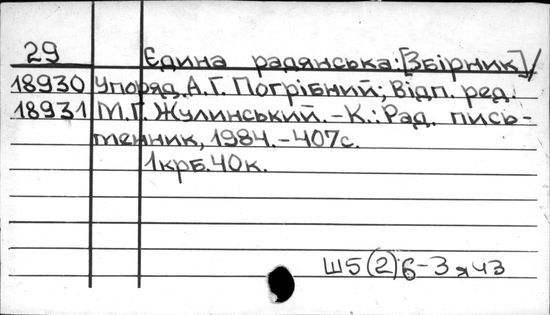 29 Єдина радянська: [Збірник]/
18930 Упоряд. А.Г. Погрібний; Відп. ред.
18931 М.Г. Жулинський. – К.: Рад. пись-
менник, 1984. – 407с.
1крб. 40к.
Ш5(2)6-3я43